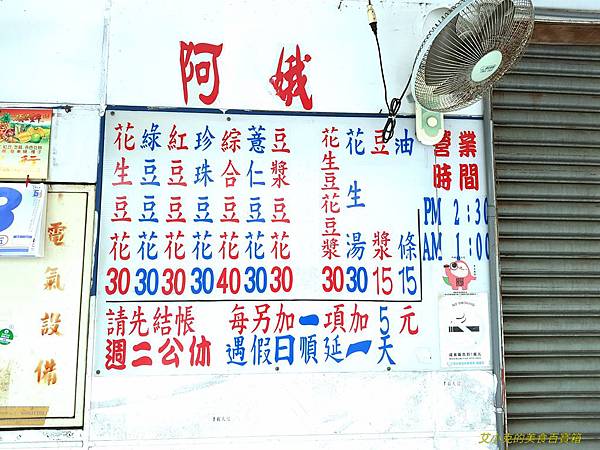 阿娥
花生豆花 30
綠豆豆花 30
紅豆豆花 30
珍珠豆花 30
綜合豆花 40
薏仁豆花 30
豆漿豆花 30
花生豆花豆漿 30
花生湯 30
豆漿 15
油條 15
請先結帳 每另加一項加5元
週二公休 遇假日順延一天
營業時間
PM 2:30
AM 1:00
電氣設備
行
艾小兔的美食百寶箱